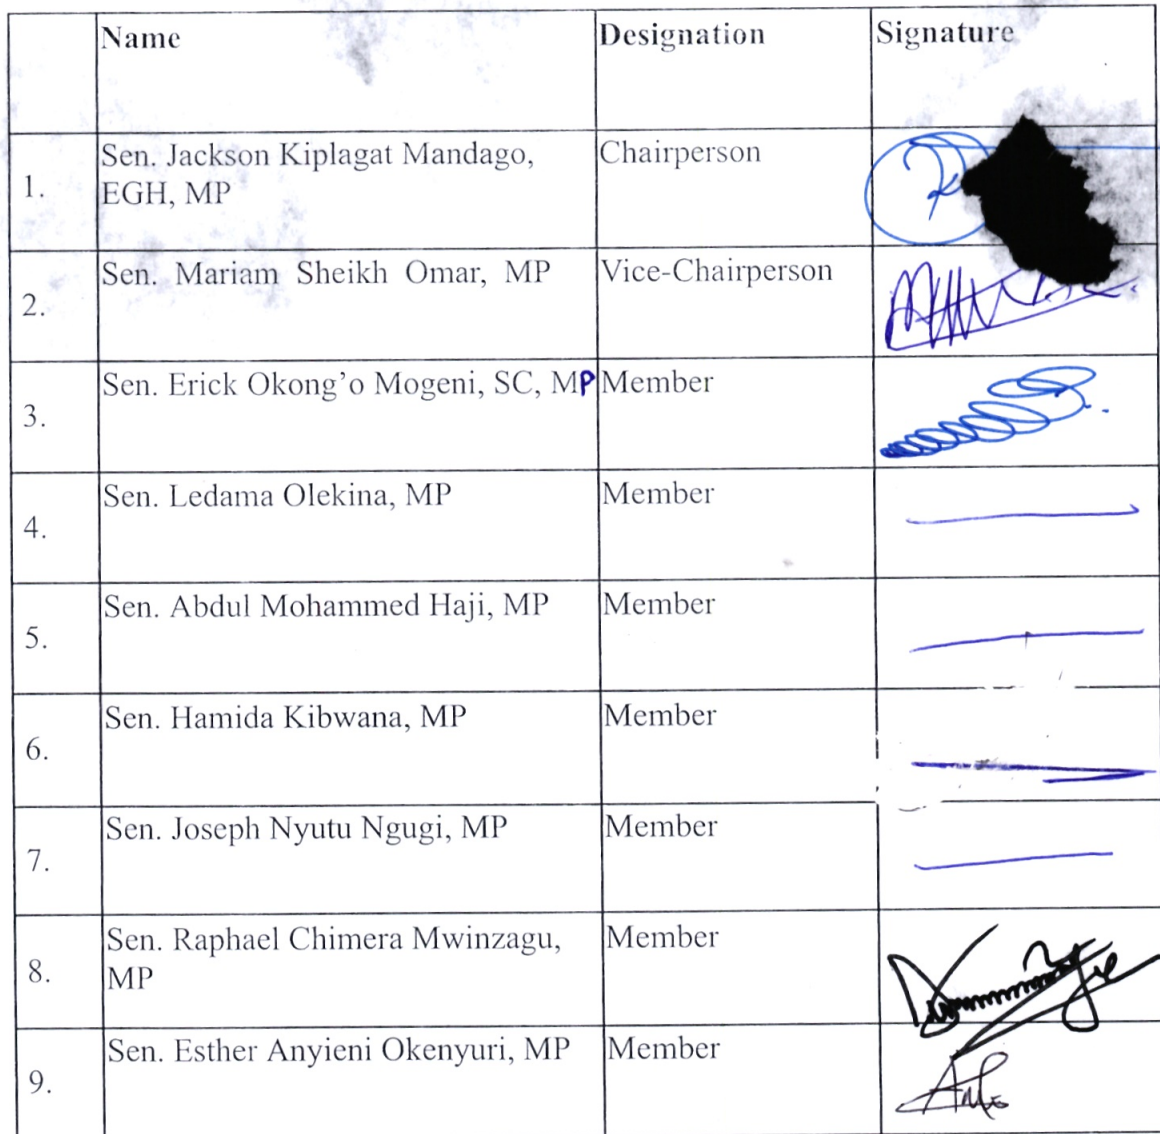 Name Designation Signature
1. Sen. Jackson Kiplagat Mandago, Chairperson
EGH, MP
2. Sen. Mariam Sheikh Omar, MP Vice-Chairperson
3. Sen. Erick Okong’o Mogeni, SC, MP Member
4. Sen. Ledama Olekina, MP Member
5. Sen. Abdul Mohammed Haji, MP Member
6. Sen. Hamida Kibwana, MP Member
7. Sen. Joseph Nyutu Ngugi, MP Member
8. Sen. Raphael Chimera Mwinzagu, Member
MP
9. Sen. Esther Anyieni Okenyuri, MP Member